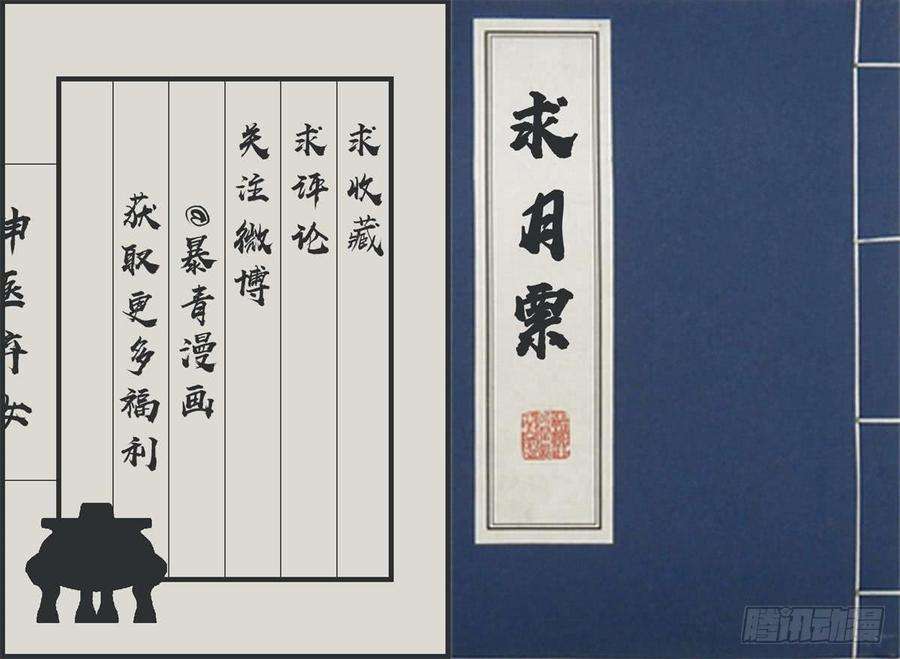 求月票
求收藏
求评论
关注微博
@暴青漫画
获取更多福利
神医弃女
腾讯动漫